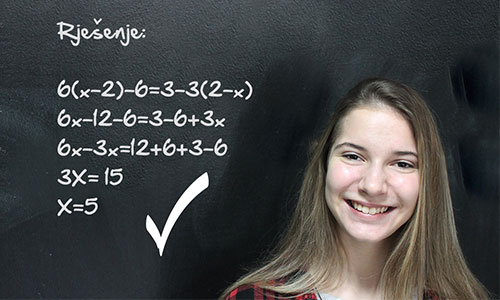 Rješenje:
6(x-2)-6=3-3(2-x)
6x-12-6=3-6+3x
6x-3x=12+6+3-6
3X=15
X=5